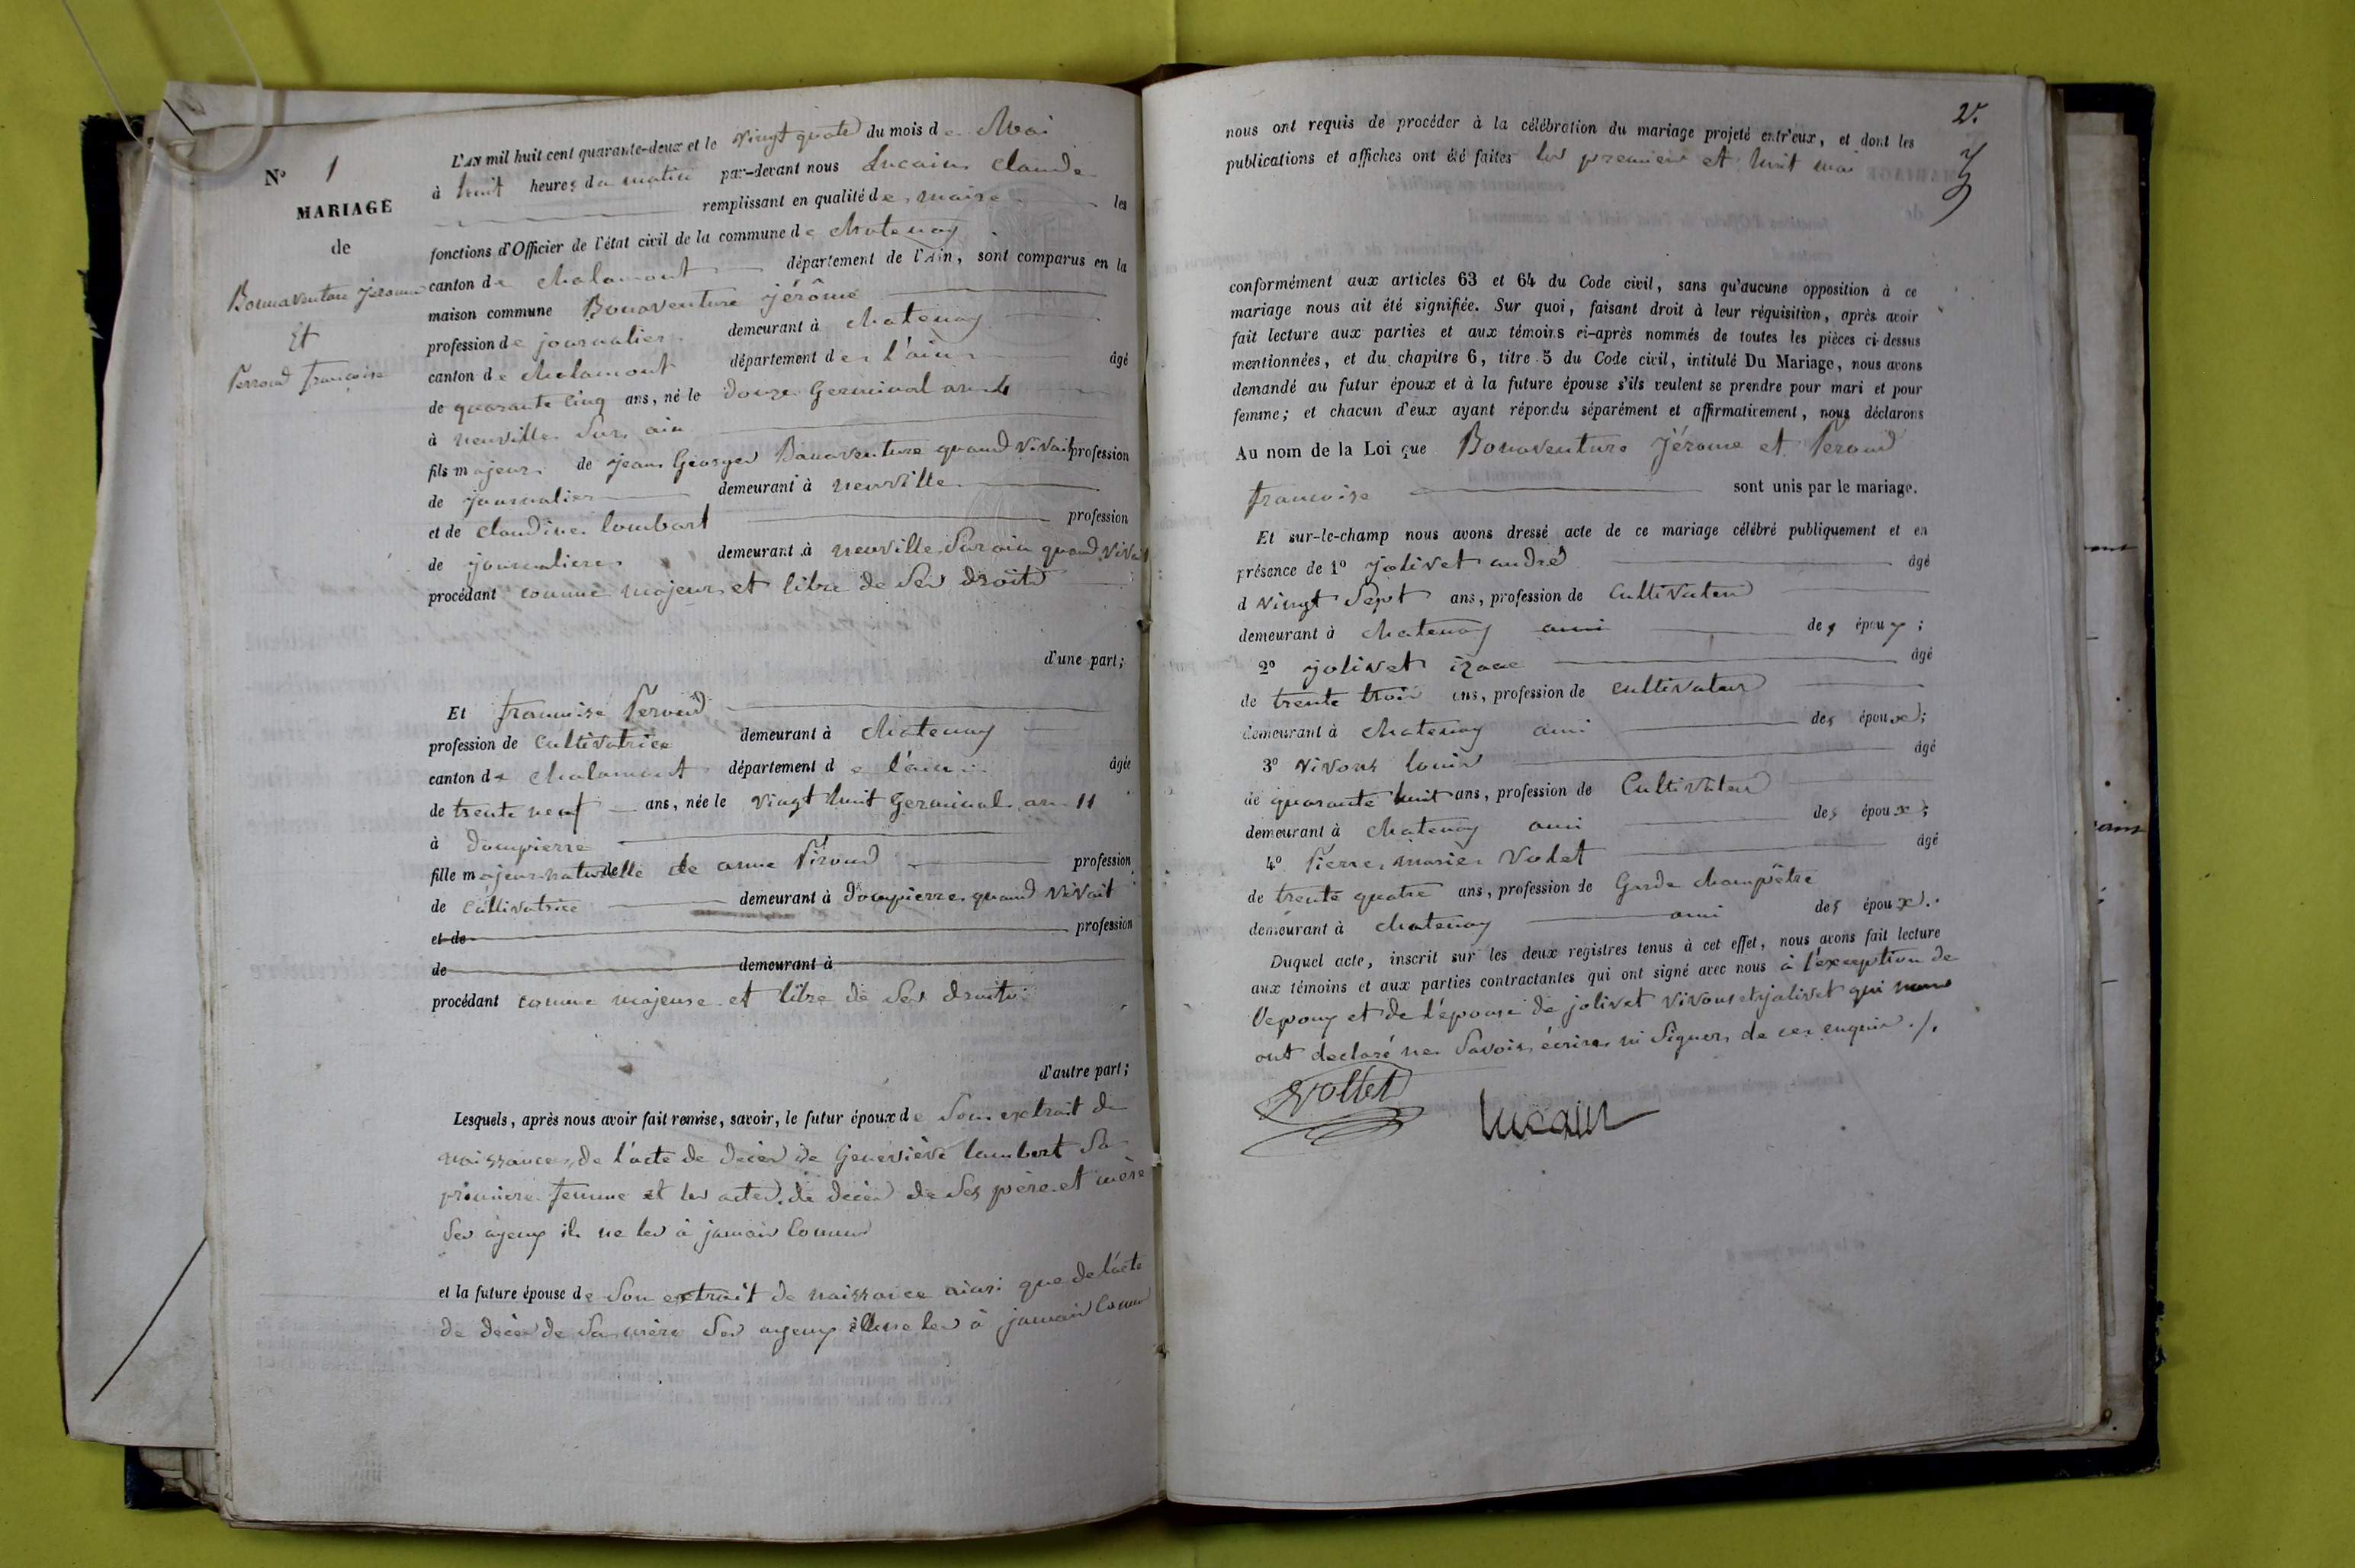 N° 1
MARIAGE
de
Bonnaventure Jérome
Et
Perroud françoise
L'AN mil huit cent quarante-deux et le vingt quatre du mois de Mai
à huit heures du matin par-devant nous Lucain Claude
remplissant en qualité de maire les
fonctions d'Officier de l'état civil de la commune de chatenay
canton de chalamont département de l'Ain, sont comparus en la
maison commune Bonaventure jérôme
profession de journalier demeurant à chatenay
canton de chalamont département de l'ain âgé
de quarante cinq ans, né le douze Germinal an 4
à neuville sur ain
fils majeur de jean Georges Bonaventure quand vivait profession
de journalier demeurant à neuville
et de claudine lombart profession
de journaliere demeurant à neuville sur ain quand vivait
procédant comme majeur et libre de ses droits
d'une part;
Et françoise Peroud
profession de Cultivatrice demeurant à chatenay
canton de chalamont département de l'ain âgée
de trente neuf ans, née le vingt huit Germinal an 11
à dompierre
fille majeur naturelle de anne Piroud profession
de Cultivatrice demeurant à dompierre quand vivait
et de profession
de demeurant à
procédant comme majeure et libre de ses droits
d'autre part;
Lesquels, après nous avoir fait remise, savoir, le futur époux de son extrait de
naissance, de l'acte de décès de Geneviève lambert sa
première femme et les actes de décès de ses père et mère
ses ayeux il ne les à jamais connus
et la future épouse de son extrait de naissance ainsi que de l'acte
de décès de sa mère ses ayeux elle ne les à jamais connu
2.
nous ont requis de procéder à la célébration du mariage projeté entr'eux, et dont les
publications et affiches ont été faites les premier et huit mai
conformément aux articles 63 et 64 du Code civil, sans qu'aucune opposition à ce
mariage nous ait été signifiée. Sur quoi, faisant droit à leur réquisition, après avoir
fait lecture aux parties et aux témoins ci-après nommés de toutes les pièces ci-dessus
mentionnées, et du chapitre 6, titre 5 du Code civil, intitulé Du Mariage, nous avons
demandé au futur époux et à la future épouse s'ils veulent se prendre pour mari et pour
femme; et chacun d'eux ayant répondu séparément et affirmativement, nous déclarons
Au nom de la Loi que Bonaventure Jérome et Peroud
francoise sont unis par le mariage.
Et sur-le-champ nous avons dressé acte de ce mariage célébré publiquement et en
présence de 1° jolivet andré âgé
d vingt sept ans, profession de Cultivateur
demeurant à chatenay ami des époux;
2° jolivet izaac âgé
de trente trois ans, profession de cultivateur
demeurant à chatenay ami des époux;
3° vivons louis âgé
de quarante huit ans, profession de Cultivateur
demeurant à chatenay ami des époux;
4° Pierre marie Volet âgé
de trente quatre ans, profession de Garde champêtre
demeurant à chatenay ami des époux.
Duquel acte, inscrit sur les deux registres tenus à cet effet, nous avons fait lecture
aux témoins et aux parties contractantes qui ont signé avec nous à l'exception de
l'epoux et de l'épouse de jolivet vivons et jolivet qui nous
ont declaré ne savoir écrire ni signer de ce enquis ./.
Vollet Lucain